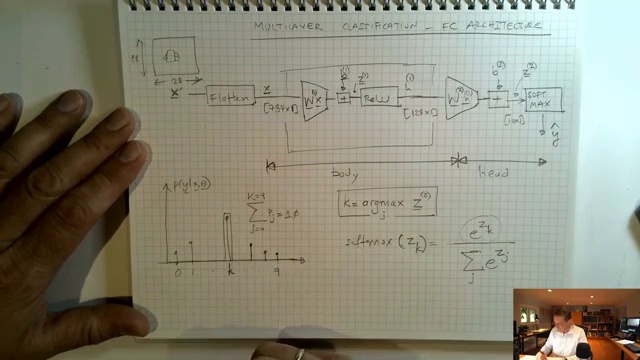 MULTILAYER CLASSIFICATION - FC ARCHITECTURE
28
28
X
Flatten
x
[784x1]
W⁽¹⁾x
b⁽¹⁾
+
z⁽¹⁾
ReLU
h⁽¹⁾
[128x1]
W⁽²⁾h
b⁽²⁾
+
z⁽²⁾
[10x1]
SOFT
MAX
ŷ
body
head
P(y|x,θ)
K=9
Σ Pj = 1.0
j=0
0 1 . k 9
k = argmax z⁽²⁾
j
softmax (z_k) = e^{z_k}
Σ e^{z_j}
j